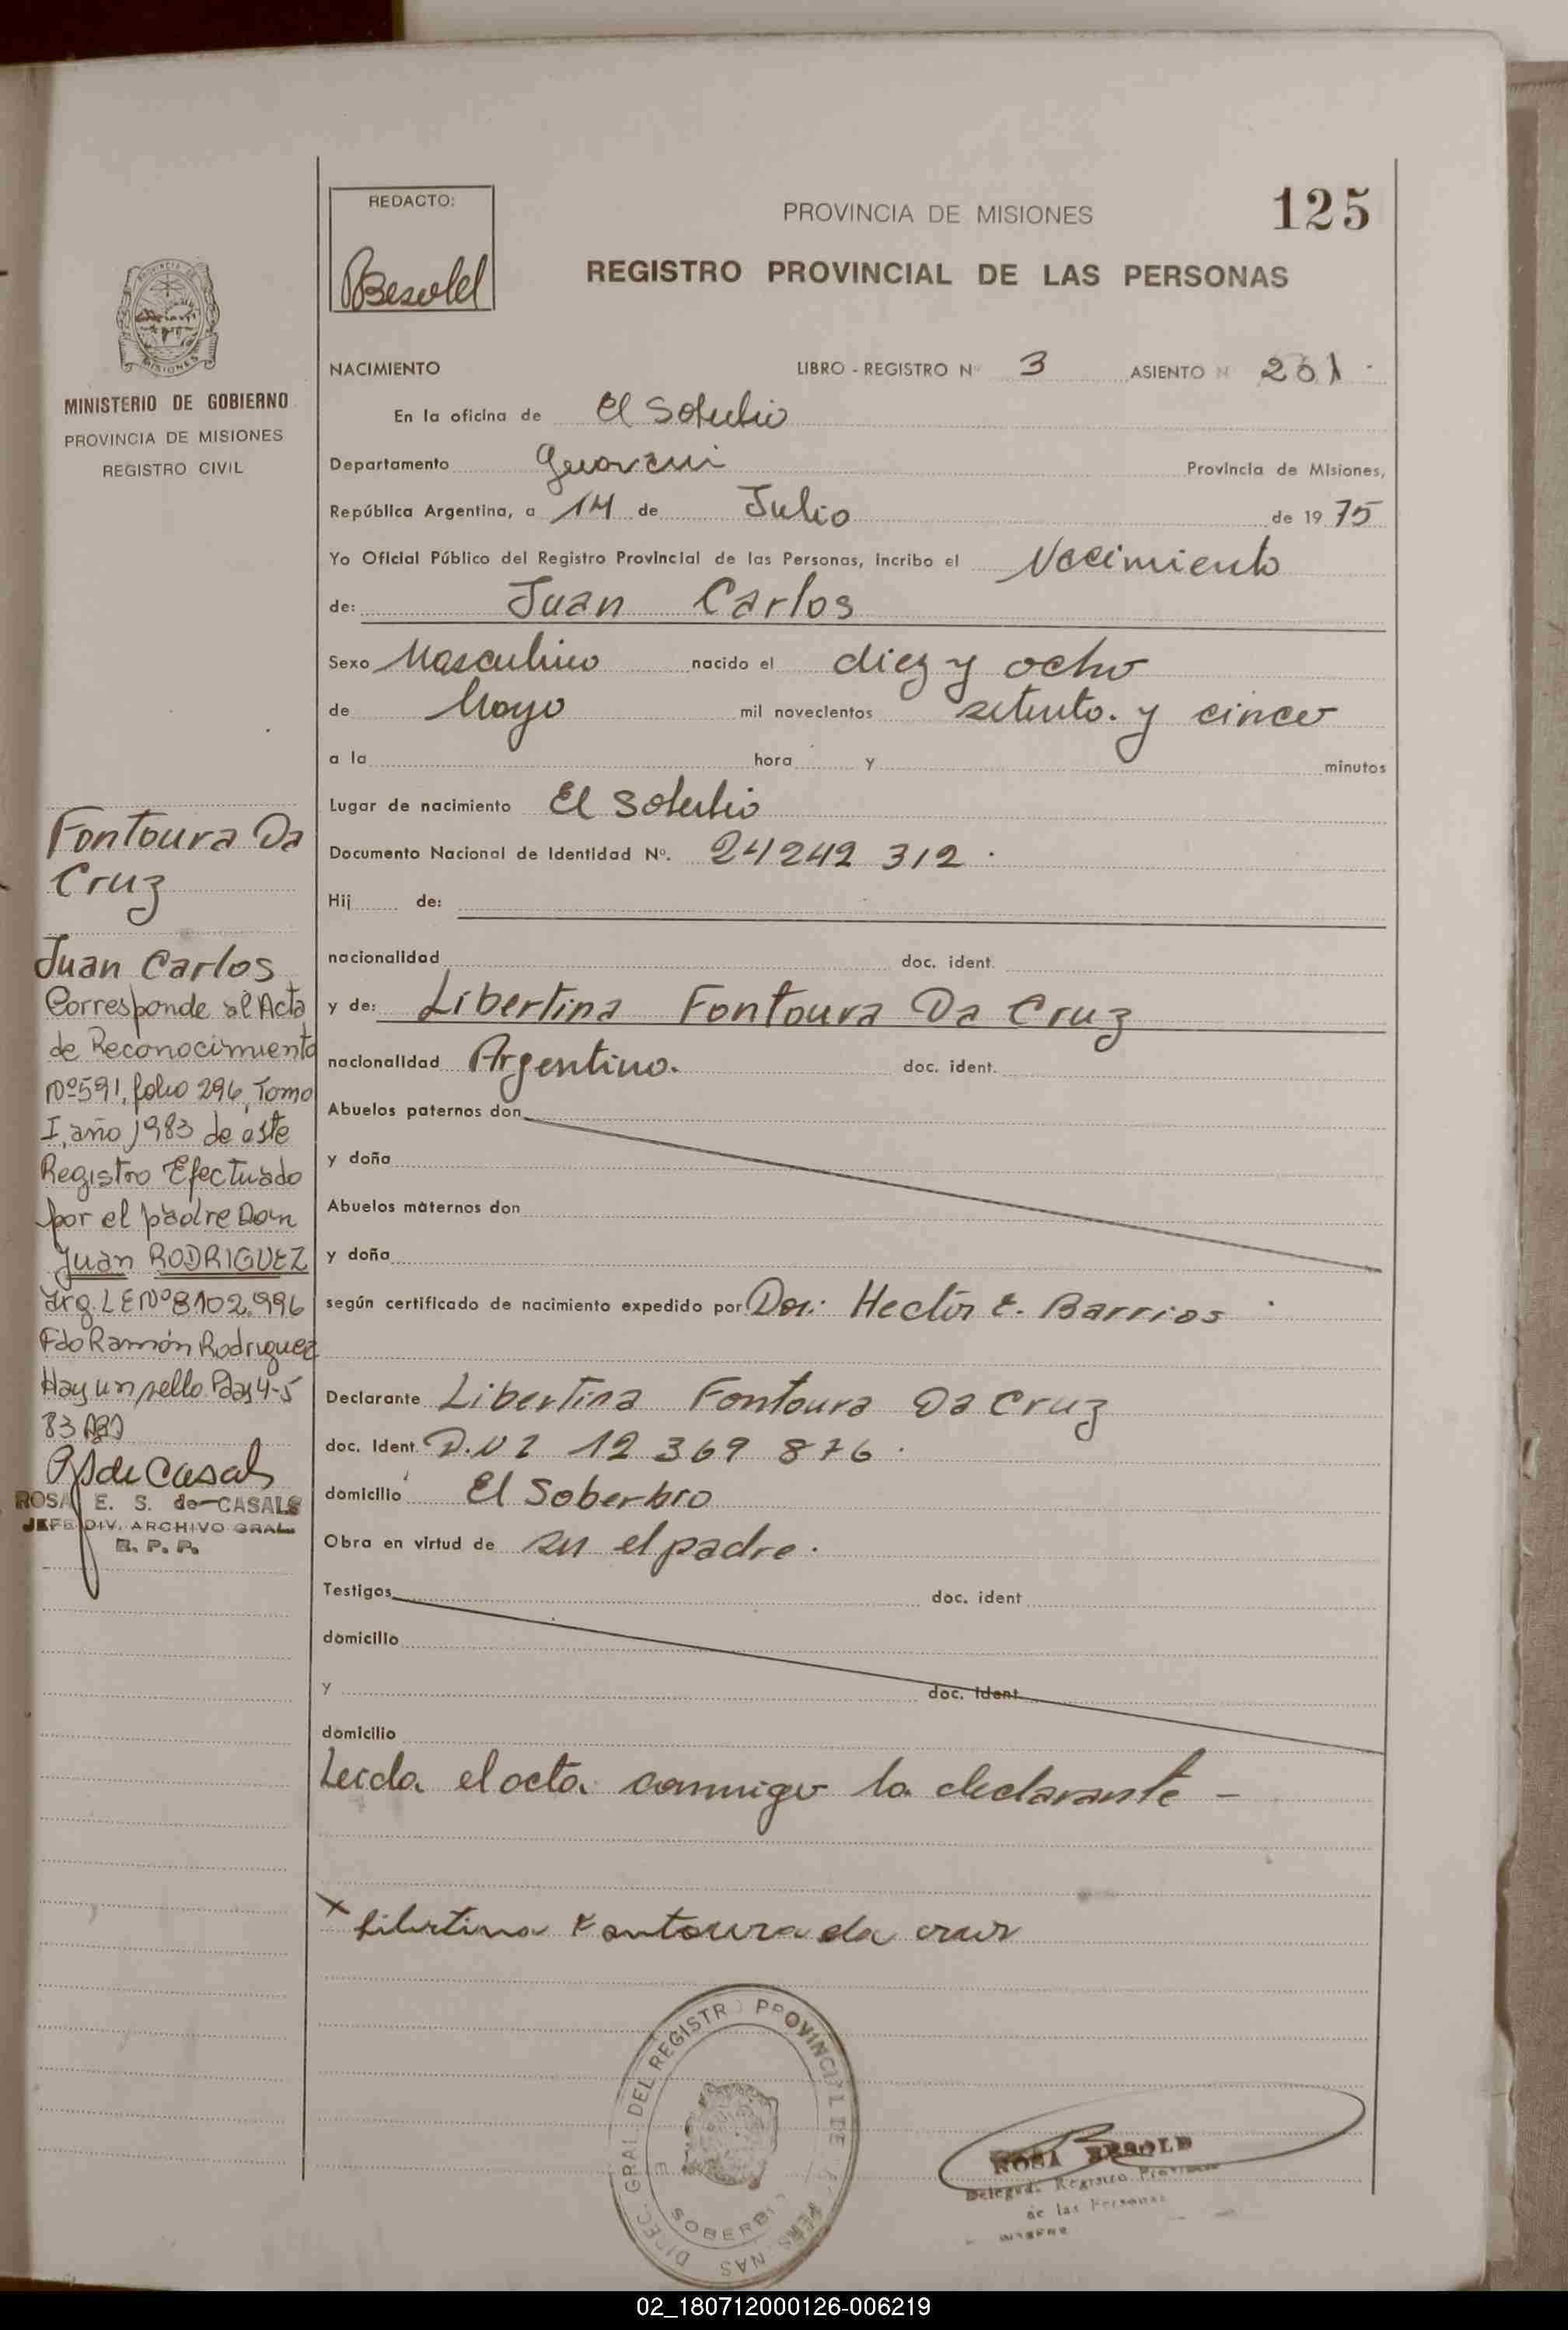 REDACTO:
Besold
PROVINCIA DE MISIONES
125
REGISTRO PROVINCIAL DE LAS PERSONAS
PROVINCIA DE
MISIONES
MINISTERIO DE GOBIERNO
PROVINCIA DE MISIONES
REGISTRO CIVIL
NACIMIENTO LIBRO - REGISTRO Nº 3 ASIENTO N 261
En la oficina de El Soberbio
Departamento Guarani Provincia de Misiones,
República Argentina, a 14 de Julio de 19 75
Yo Oficial Público del Registro Provincial de las Personas, incribo el Nacimiento
de: Juan Carlos
Sexo Masculino nacido el diez y ocho
de Mayo mil novecientos setenta y cinco
a la hora y minutos
Lugar de nacimiento El Soberbio
Documento Nacional de Identidad Nº. 24242 312
Hij de:
nacionalidad doc. ident.
y de: Libertina Fontoura Da Cruz
nacionalidad Argentina. doc. ident.
Abuelos paternos don
y doña
Abuelos maternos don
y doña
según certificado de nacimiento expedido por Don: Hector E. Barrios
Declarante Libertina Fontoura Da Cruz
doc. Ident. D.N I 12 369 876.
domicilio El Soberbio
Obra en virtud de ser el padre.
Testigos doc. ident
domicilio
y doc. Ident
domicilio
Leida el acta conmigo la declarante -
x Libertina Fontoura da cruz
Fontoura Da
Cruz
Juan Carlos
Corresponde al Acta
de Reconocimiento
Nº591, folio 296, Tomo
I, año 1983 de este
Registro Efectuado
por el padre Don
Juan RODRIGUEZ
arg. L E Nº 8.102.996
Fdo Ramón Rodriguez
Hay un sello Pdas 4-5
83
de Casals
ROSA E. S. de CASALS
JEFE DIV. ARCHIVO GRAL.
R. P. P.
DIREC. GRAL. DEL REGISTRO PROVINCIAL DE PERSONAS
SOBERBIO
ROSA BESOLD
Delegada Registro Provincial
de las Personas
02_180712000126-006219